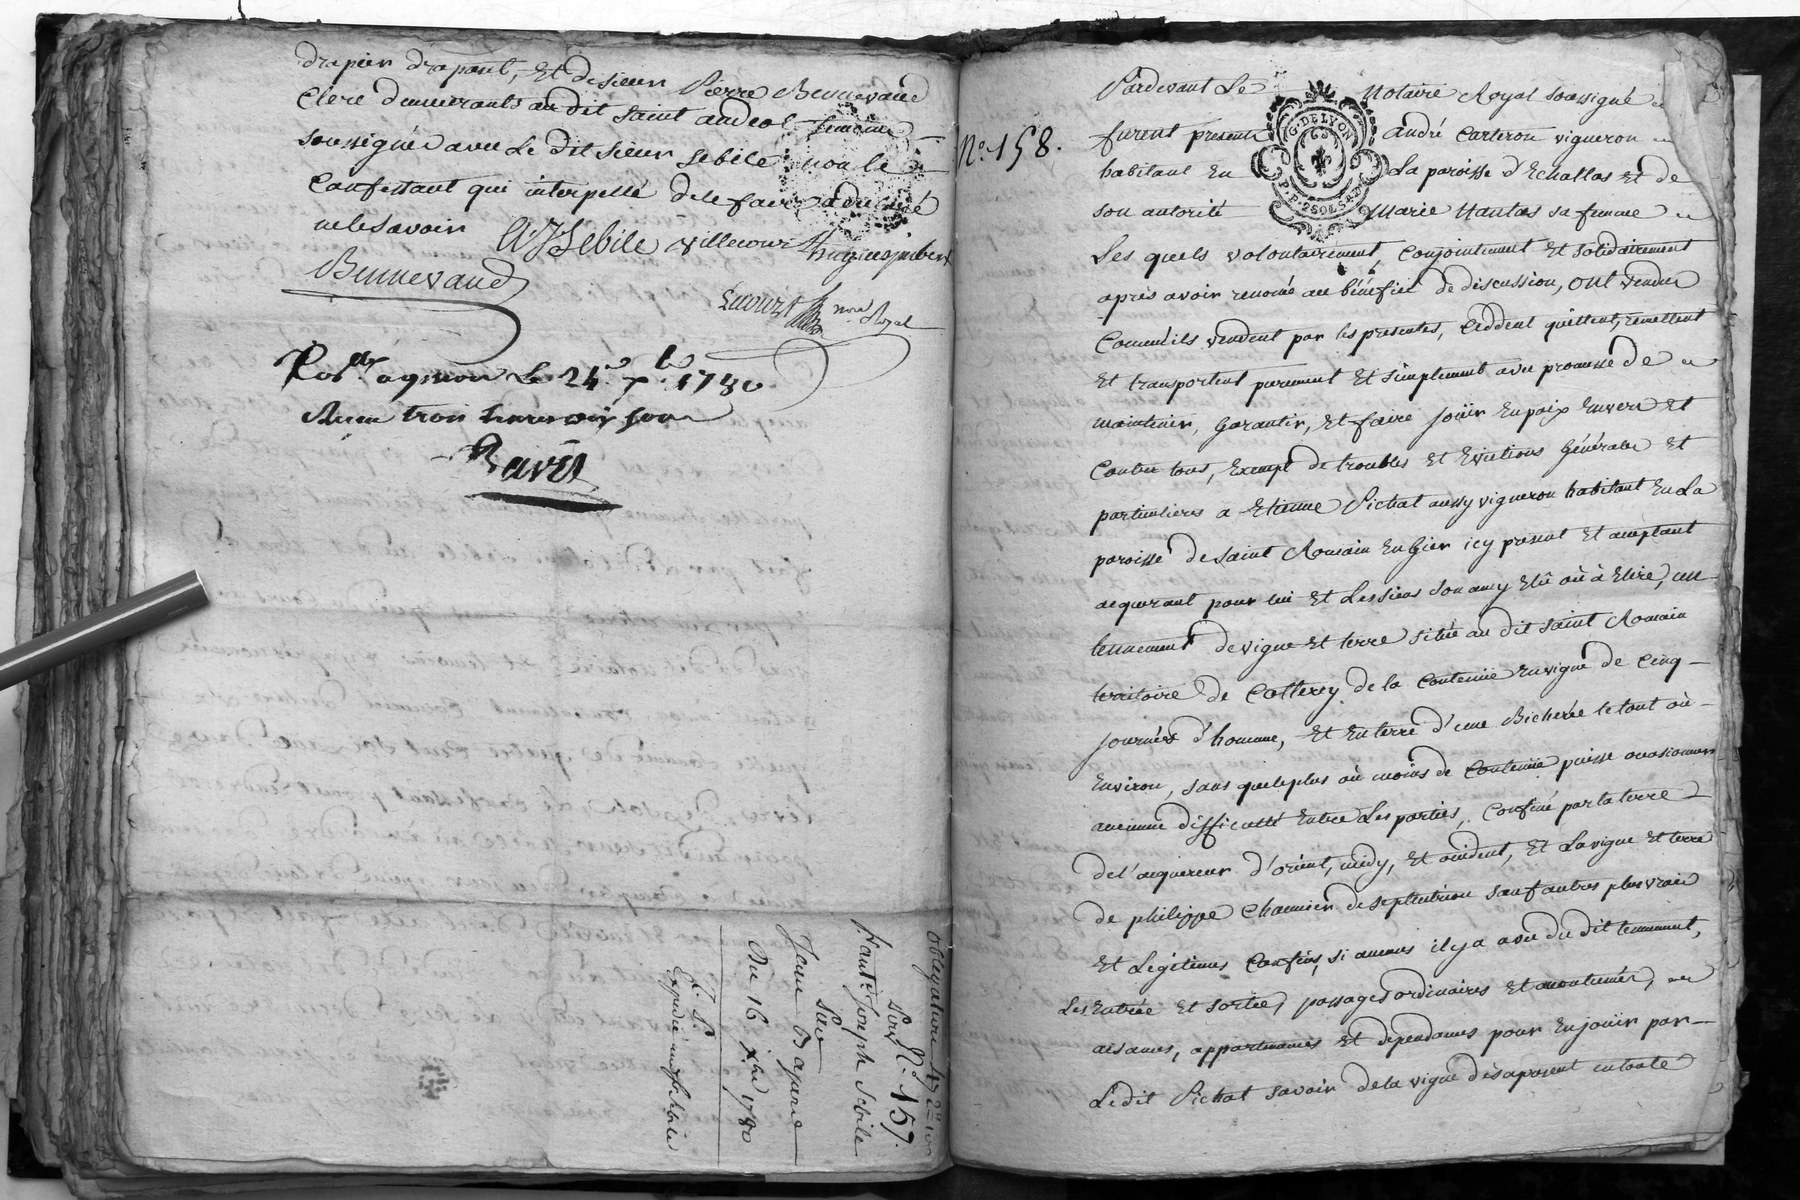 drapier drapant, Et de sieur Pierre Bennevaud
Clerc demeurants au dit saint andeol temoins
soussignés avec Le dit sieur sebile non le
Confessant qui interpellé de le faire a declaré
ne le savoir
A J Sebile villecour
Bennevaud
nore Royal
a givors Le 24. 7bre 1780
Recu trois livres
Ravet
Obligation
N.° 157.
Pour
franc.s Joseph Sebile
Sur
Jeane Bajard
Du 16 7bre 1780
Expedié au sr Sebile
N.° 158.
Pardevant Le Notaire Royal soussigné
G. DE LYON
furent presents andré Carteron vigneron
habitant En La paroisse d'Echallas Et de
son autorité Marie Nantas sa femme
Les quels volontairement, Conjointement Et solidairement
après avoir renoncé au bénéfice de discussion, ont vendu
Comm'ils vendent par les presentes, Ceddent quittent, remettent
Et transportent purement Et simplement avec promesse de
maintenir, garantir, Et faire joüir En paix Envers Et
Contre tous, Exempt de troubles Et Evictions Générales Et
particulieres a Etienne Pichat aussy vigneron habitant En La
paroisse de saint Romain En Gier icy present Et acceptant
acquerant pour lui Et Les siens son amy Elû où à Elire, un
tennement de vigne Et terre située au dit saint Romain
territoire de Cotterey de la Contenüe En vigne de Cinq
journées d'homme, Et En terre d'une Bicherée le tout où
Environ, sans que le plus où moins de Contenüe puisse occasionner
aucunne difficulté Entre Les parties, Confiné par la terre
de l'acquereur d'orient, midy, Et occident, Et La vigne Et terre
de philippe Chaumier de septentrion sauf autres plus vrais
Et Légitimes Confins, si aucuns il y a avec du dit tennement,
Les Entrée Et sortie, passages ordinaires Et acoutumés,
aisances, appartenances Et dépendances pour En joüir par
Le dit Pichat savoir de la vigne dès a present En toute